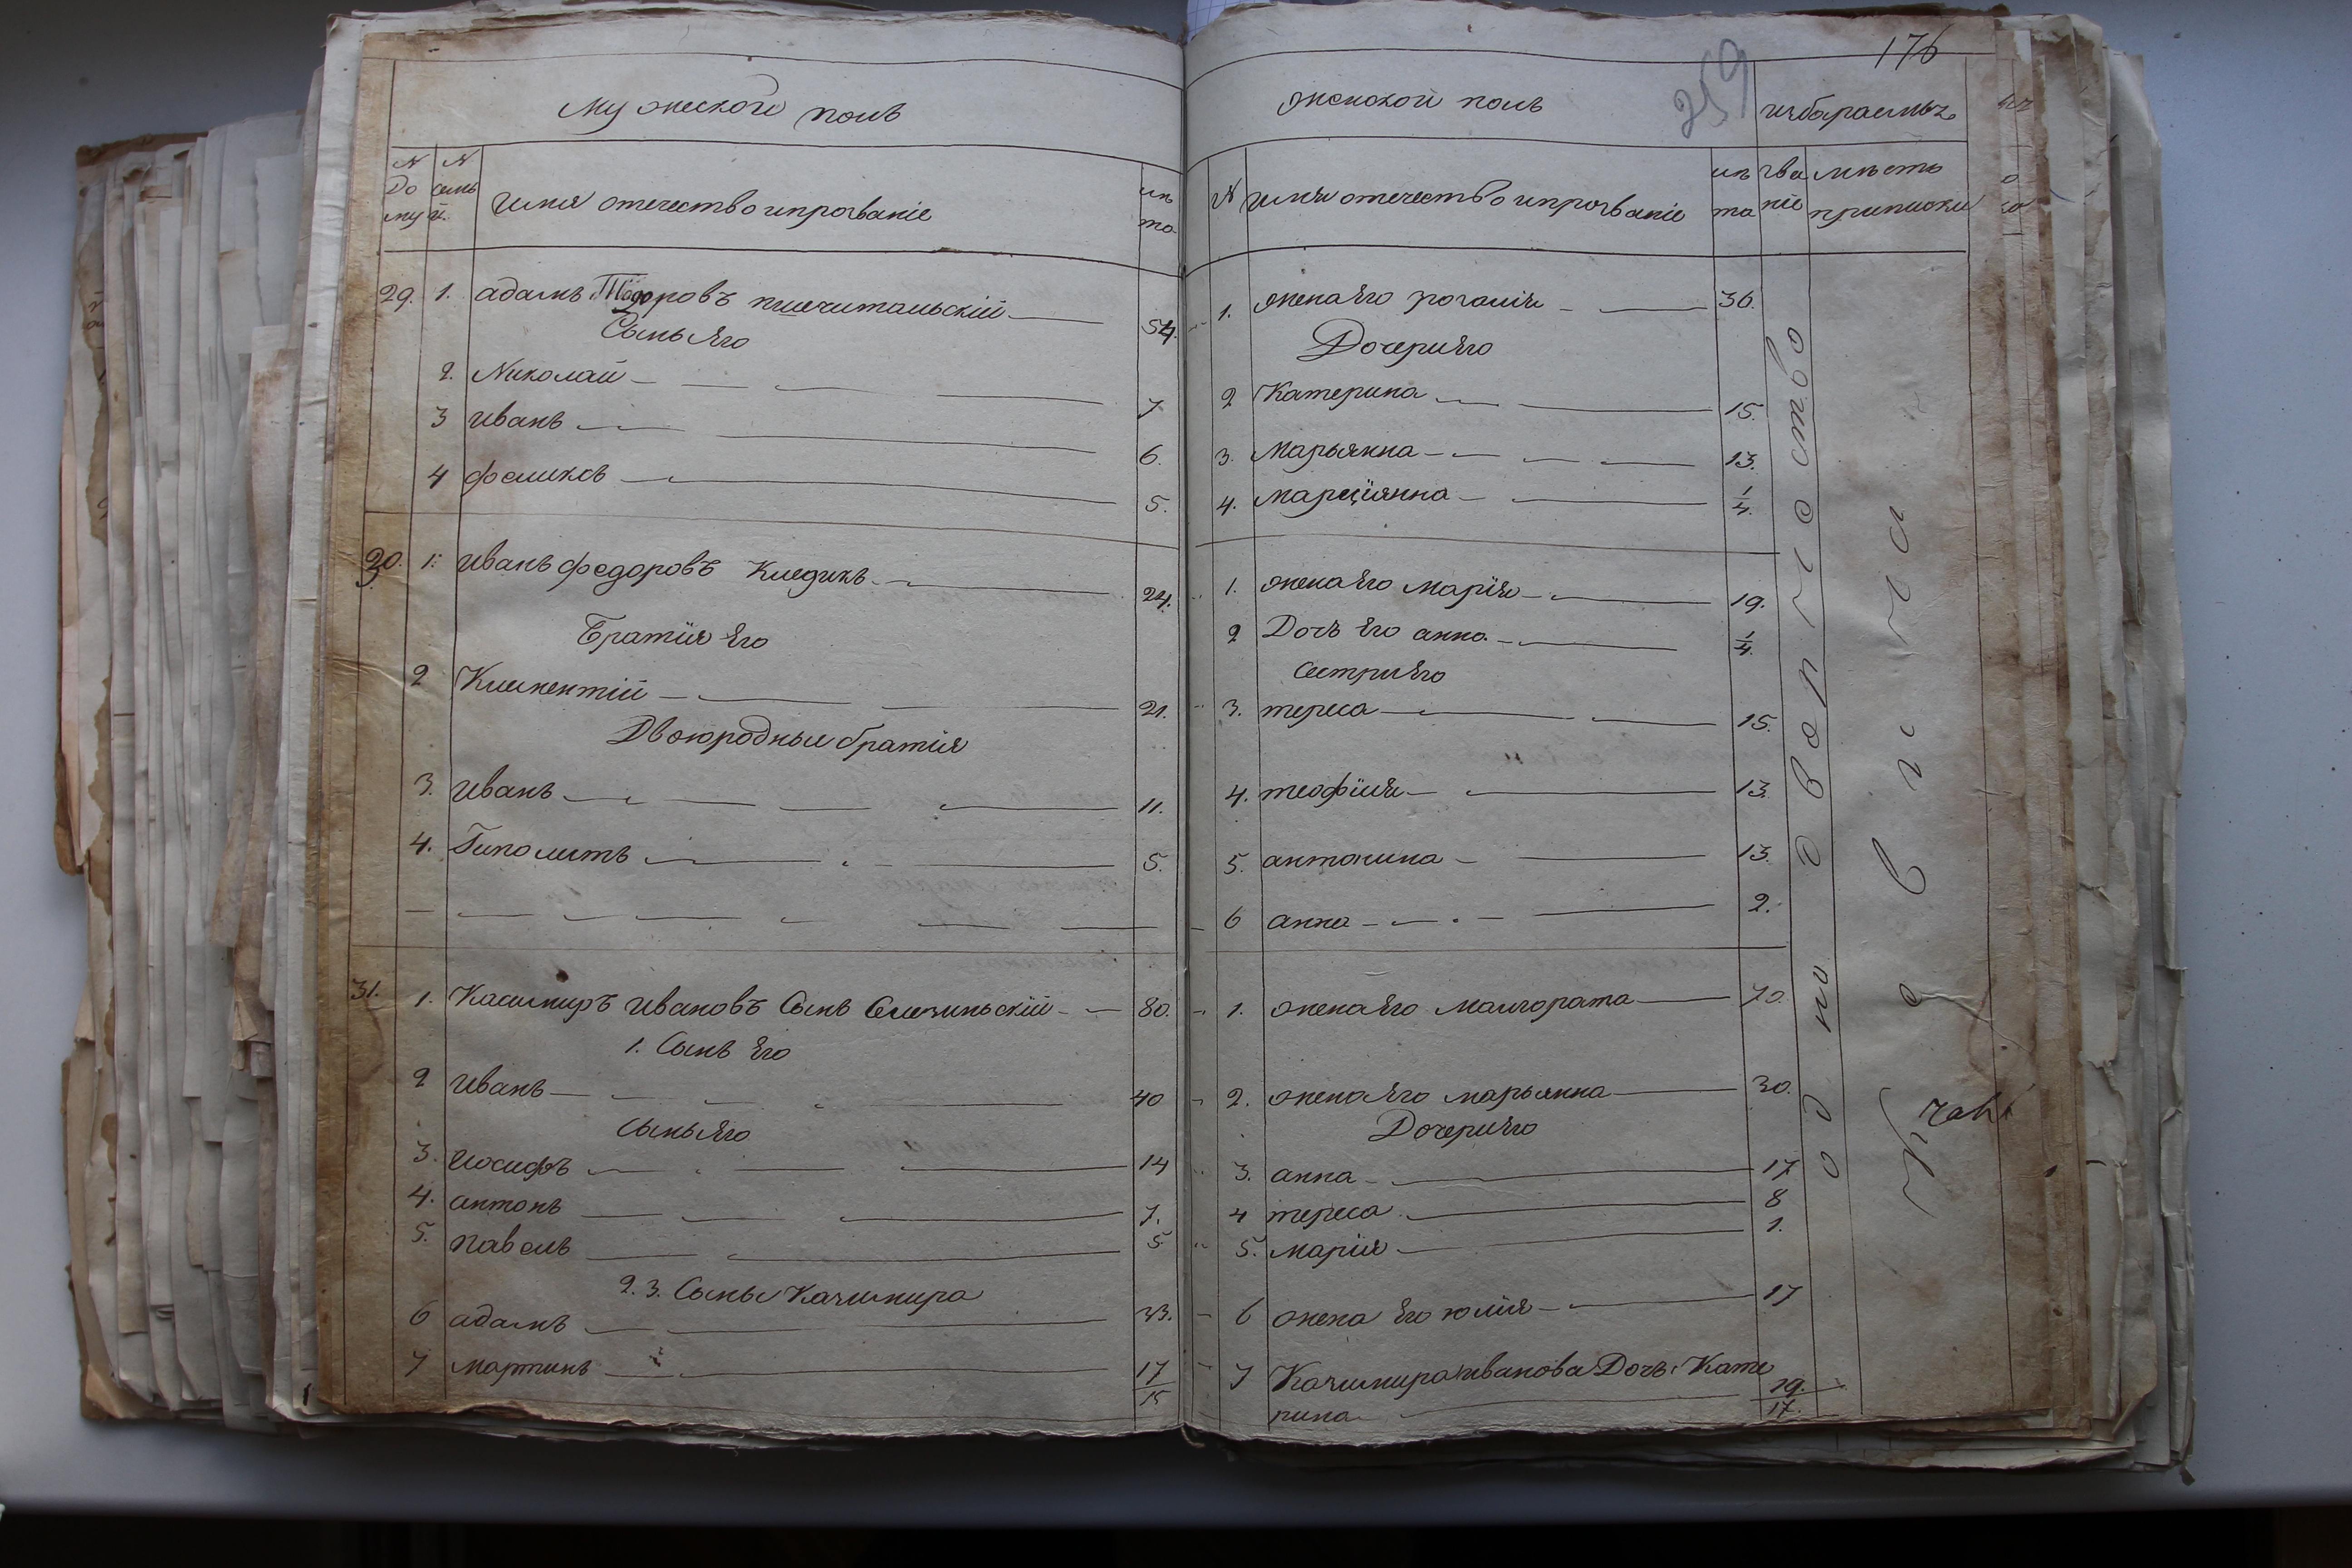 176
259
Мужеской полъ
N дому
N семьи
имя отечество ипрозваніе
лѣта
29. 1. адамъ Тодоровъ пшечитальскій 54.
Сынъ Его
2. Николай 7
3 иванъ 6.
4 феликсъ 5.
30. 1. иванъ федоровъ Кледикъ 24.
Братия Его
2 Клементій 21.
Двоюродные братия
3. иванъ 11.
4. Гиполитъ 5.
31. 1. Касимиръ ивановъ Сынъ 80.
1. Сынъ Его
2 иванъ 40
Сынъ Его
3. иосифъ 14
4. антонъ 7.
5. павелъ 5
2. 3. Сыны Казимира
6 адамъ 23.
7 мартинъ 17
15
женской полъ
избараемыхъ
N имя отечество ипрозваніе
лѣта
званіе
мѣсто приписки
1. жена Его розалия 36.
Дочери Его
2 Катерина 15.
3. Марьянна 13.
4. марцїянна 1/4.
1. жена Его марїя 19.
2 Дочъ Его анна 1/4.
Сестри Его
3. тереса 15.
4. теофиля 13.
5. антонина 13.
6 анна 2.
1. жена Его малгората 70.
2. жена Его марьянна 30.
Дочери Его
3. анна 17
4 тереса 8
5. марїя 1.
6 жена Его юлїя 17
7 Казимира иванова Дочъ Кате
рина 19.
17.
однодворчество